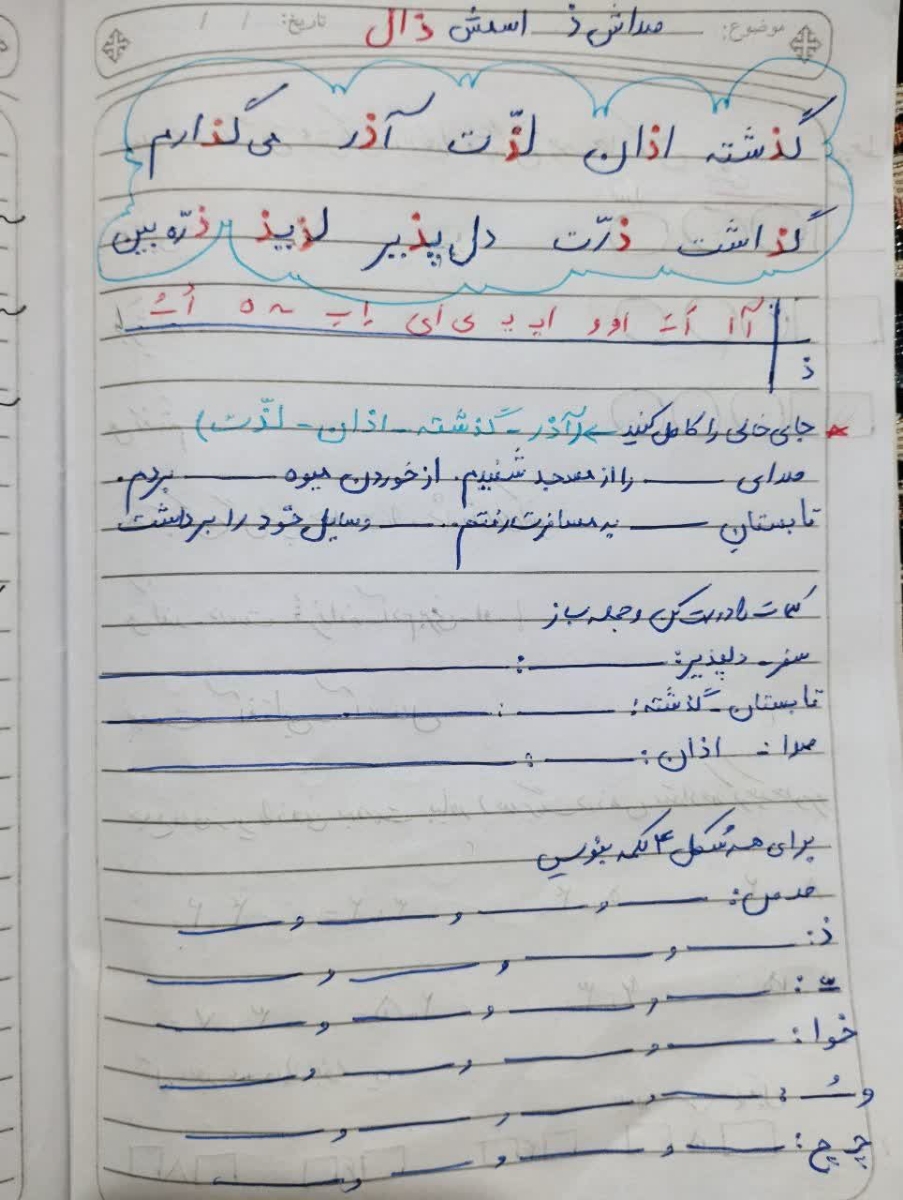 موضوع: صداش ذ اسمش ذال تاریخ: / /
گذشته اذان لذّت آذر می‌گذارم
گذاشت ذرّت دل‌پذیر لذیذ ذرّه‌بین
آ ا اَ ـَ او و ایـ یـ ی ای اِ ـِ ه اُ ـُ
ذ
جای خالی را کامل کنید ← (آذر - گذشته - اذان - لذّت)
صدای ــــ را از مسجد شنیدم. از خوردن میوه ــــ بردم.
تابستانِ ــــ به مسافرت رفتم. ــــ وسایل خود را برداشت
کلمات را درست کن و جمله بساز
سفر - دلپذیر: ــــ : ــــ
تابستان - گذشته: ــــ : ــــ
صدا - اذان: ــــ : ــــ
برای هر شکل ۴ کلمه بنویس
صـ ص: ــــ و ــــ و ــــ و ــــ
ذ: ــــ و ــــ و ــــ و ــــ
ـّ : ــــ و ــــ و ــــ و ــــ
خوا: ــــ و ــــ و ــــ و ــــ
و ـُ : ــــ و ــــ و ــــ و ــــ
چـ چ: ــــ و ــــ و ــــ و ــــ